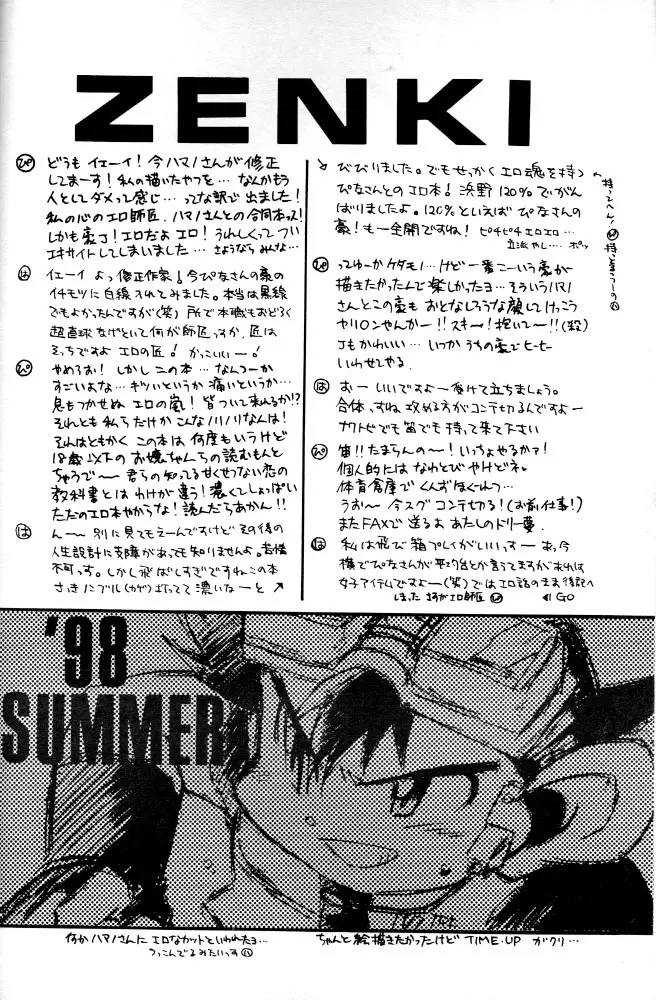 ZENKI
㋪ どうも イェーイ!今ハマノさんが修正
してまーす!私の描いたやつを…なんかもう
人としてダメって感じ…ってな訳で出ました!
私の心のエロ師匠、ハマノさんとの合同本っス!
しかも豪J!エロだよエロ!うれしくってつい
エキサイトしてしまいました…さようならみんな…
㋩ イェーイ よっ修正作家!今ぴなさんの豪の
イチモツに白線入れてみました。本当は黒線
でもよかったんですが(笑)所で本職もおどろく
超直球なげといて何が師匠っすか、匠は
そっちですよ エロの匠!かっこいいー!
㋪ やめろお!しかしこの本…なんつーか
すごいよな…キツいというか痛いというか…
息もつかせぬエロの嵐!皆ついて来れるか!?
それとも私らだけかこんなノリノリなんは!
それはともかくこの本は何度もいうけど
18歳以下のお嬢ちゃんらの読むもんと
ちゃうで〜 君らの知ってる甘くせつない恋の
教科書とはわけが違う!濃くてしょっぱい
ただのエロ本やからな!読んだらあかん!!
㋩ ん〜〜別に見てもえーんですけどその後の
人生設計に支障があっても知りませんよ。苦情
不可っす。しかし飛ばしすぎですねこの本
さっきニプル(カゲ)打ってて濃いなーと ↗
↘ びびりました。でもせっかくエロ魂を持つ
ぴなさんとのエロ本!浜野120%でがん
ばりましたよ。120%といえばぴなさんの
豪!も一全開ですね!ピチピチエロエロ…
持ってへん!㋪ 持っとるっつーの㋩
㋪ ってゆーかケダモノ…けど一番こーいう豪が
描きたかったんで楽しかったヨ…そういうハマノ
さんとこの豪もおとなしそうな顔してけっこう
ヤリロンやんかー!!スキー!抱いてー!!(殺)
Jもかわいい…いつかうちの豪でヒーヒー
いわせてやる
㋩ おー いいですよー受けて立ちましょう。
合体っすね 攻める方がコンテ切るんですよー
ナワトビでも笛でも持って来て下さい
㋪ 笛!!たまらんの〜!いっちょやるかァ!
個人的にはなわとびやけどネ。
体育倉庫でくんずほぐれつ…
うお〜今スグコンテ切る!(お前仕事!)
またFAXで送るよ あたしのドリー夢
㋩ 私は飛び箱プレイがいいっすーあっ、今
横でぴなさんが平均台とか言ってますがあれは
女子アイテムですよー(笑)ではエロ話のまま後記へ
しまった さすがエロ師匠㋪ ◀ GO
'98
SUMMER
何かハマノさんに エロなカットといわれたヨ…
つっこんでるみたいっす㋩
ちゃんと絵描きたかったけど TIME・UP ガクリ…